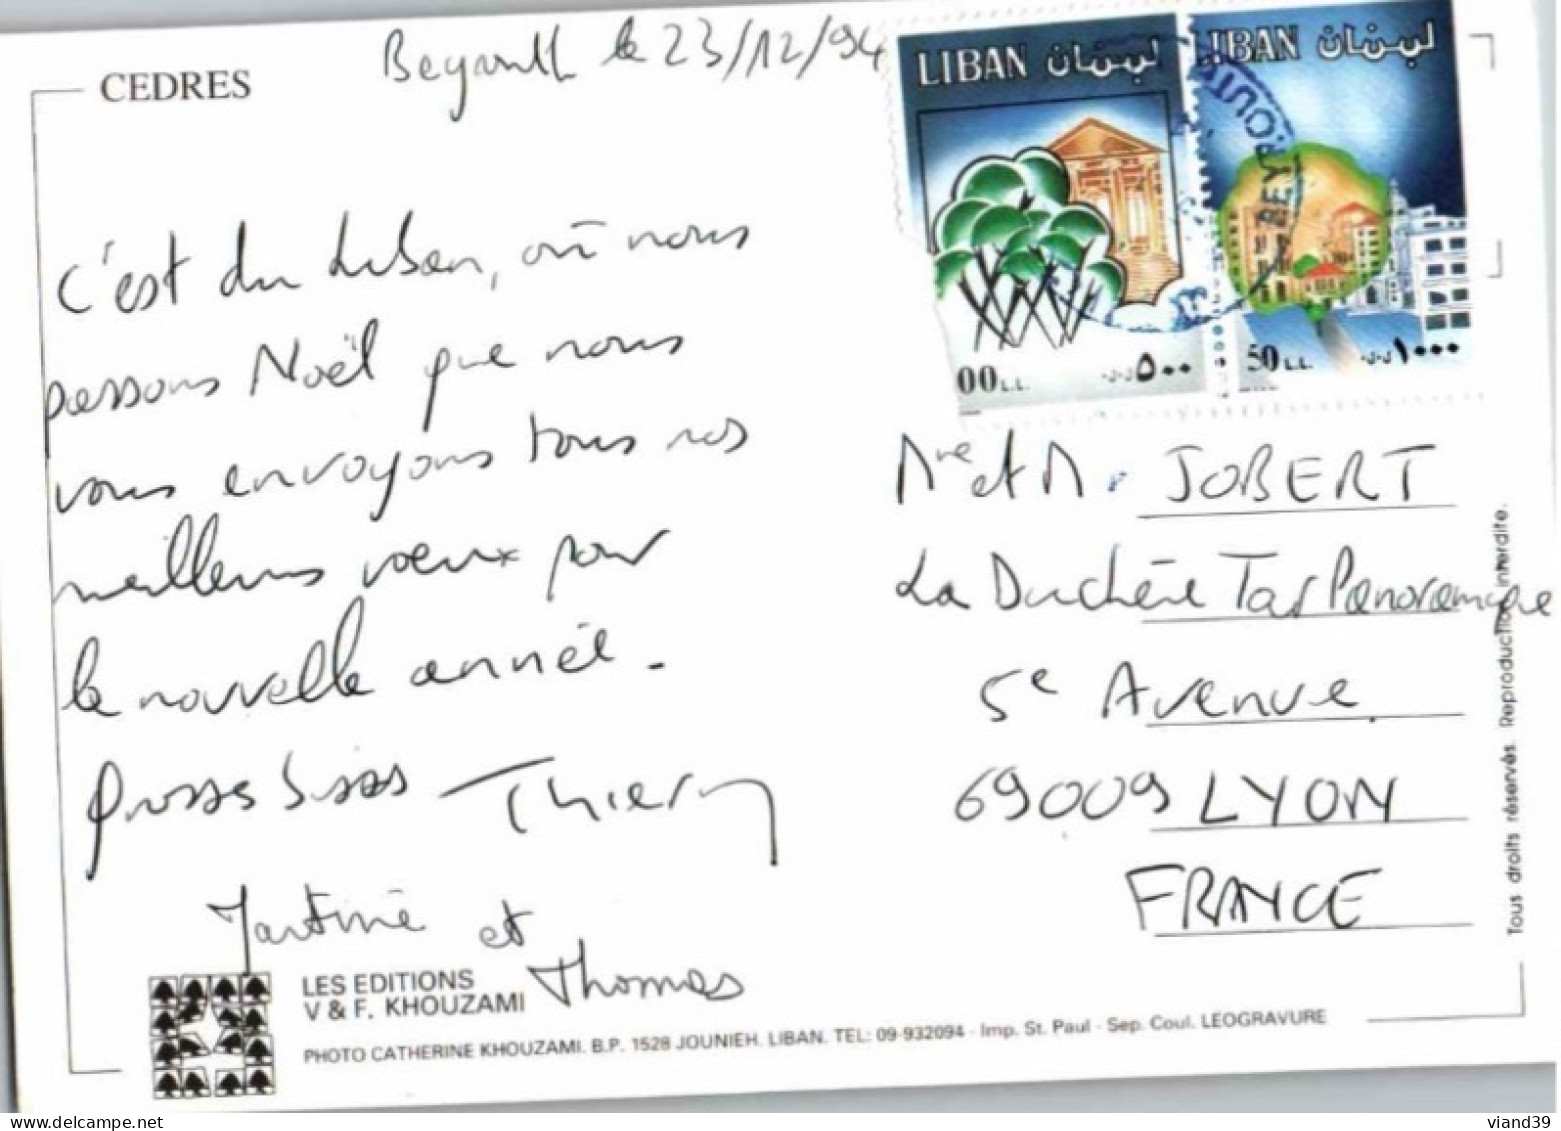 CEDRES
Beyrouth le 23/12/94
C'est du Liban, où nous
passons Noël que nous
vous envoyons tous nos
meilleurs voeux pour
la nouvelle année.
Grosses bises Thierry
Martine et
Thomas
LIBAN لبنان
00 L.L. ٥٠٠ ل.ل.
LIBAN لبنان
50 L.L. ١٠٠٠ ل.ل.
BEYROUT
Mme et M. JOBERT
La Duchère Tour Panoramique
5e Avenue
69009 LYON
FRANCE
Tous droits réservés. Reproduction interdite.
LES EDITIONS
V & F. KHOUZAMI
PHOTO CATHERINE KHOUZAMI. B.P. 1528 JOUNIEH. LIBAN. TEL: 09-932094 - Imp. St. Paul - Sep. Coul. LEOGRAVURE
viand39